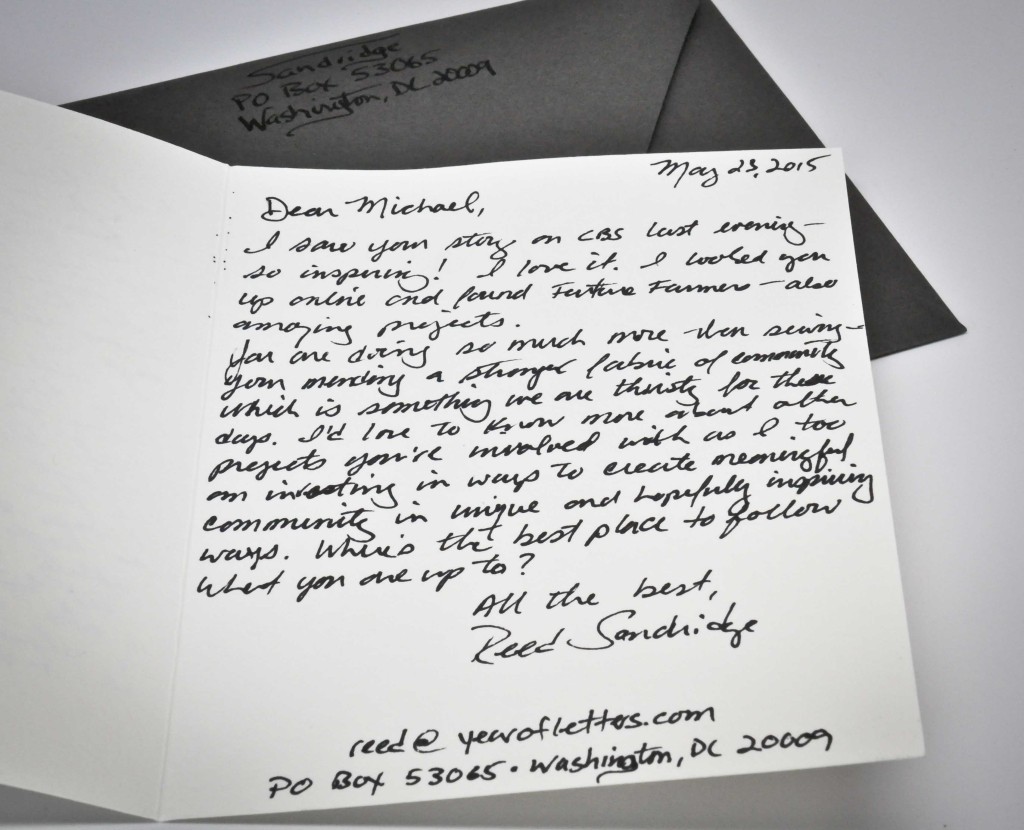 Sandridge
PO Box 53065
Washington, DC 20009
May 23, 2015
Dear Michael,
I saw your story on CBS last evening—
so inspiring! I love it. I looked you
up online and found Future Farmers — also
amazing projects.
You are doing so much more than sewing—
your mending a stronger fabric of community
which is something we are thirsty for these
days. I'd love to know more about other
projects you're involved with as I too
am investing in ways to create meaningful
community in unique and hopefully inspiring
ways. Where's the best place to follow
what you are up to?
All the best,
Reed Sandridge
reed@yearofletters.com
PO Box 53065 · Washington, DC 20009